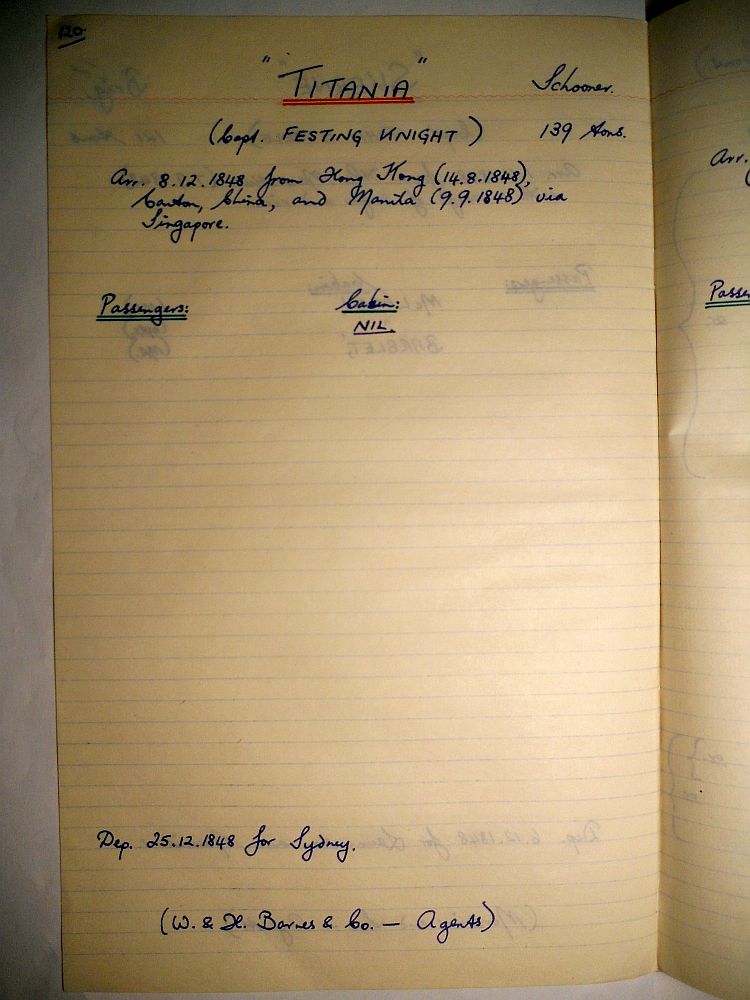 120
"TITANIA" Schooner.
(Capt. FESTING KNIGHT) 139 tons.
Arr. 8.12.1848 from Hong Kong (14.8.1848),
Canton, China, and Manila (9.9.1848) via
Singapore.
Passengers: Cabin:
NIL.
Dep. 25.12.1848 for Sydney.
(W. & H. Barnes & Co. — Agents)
Arr.
(
Passe